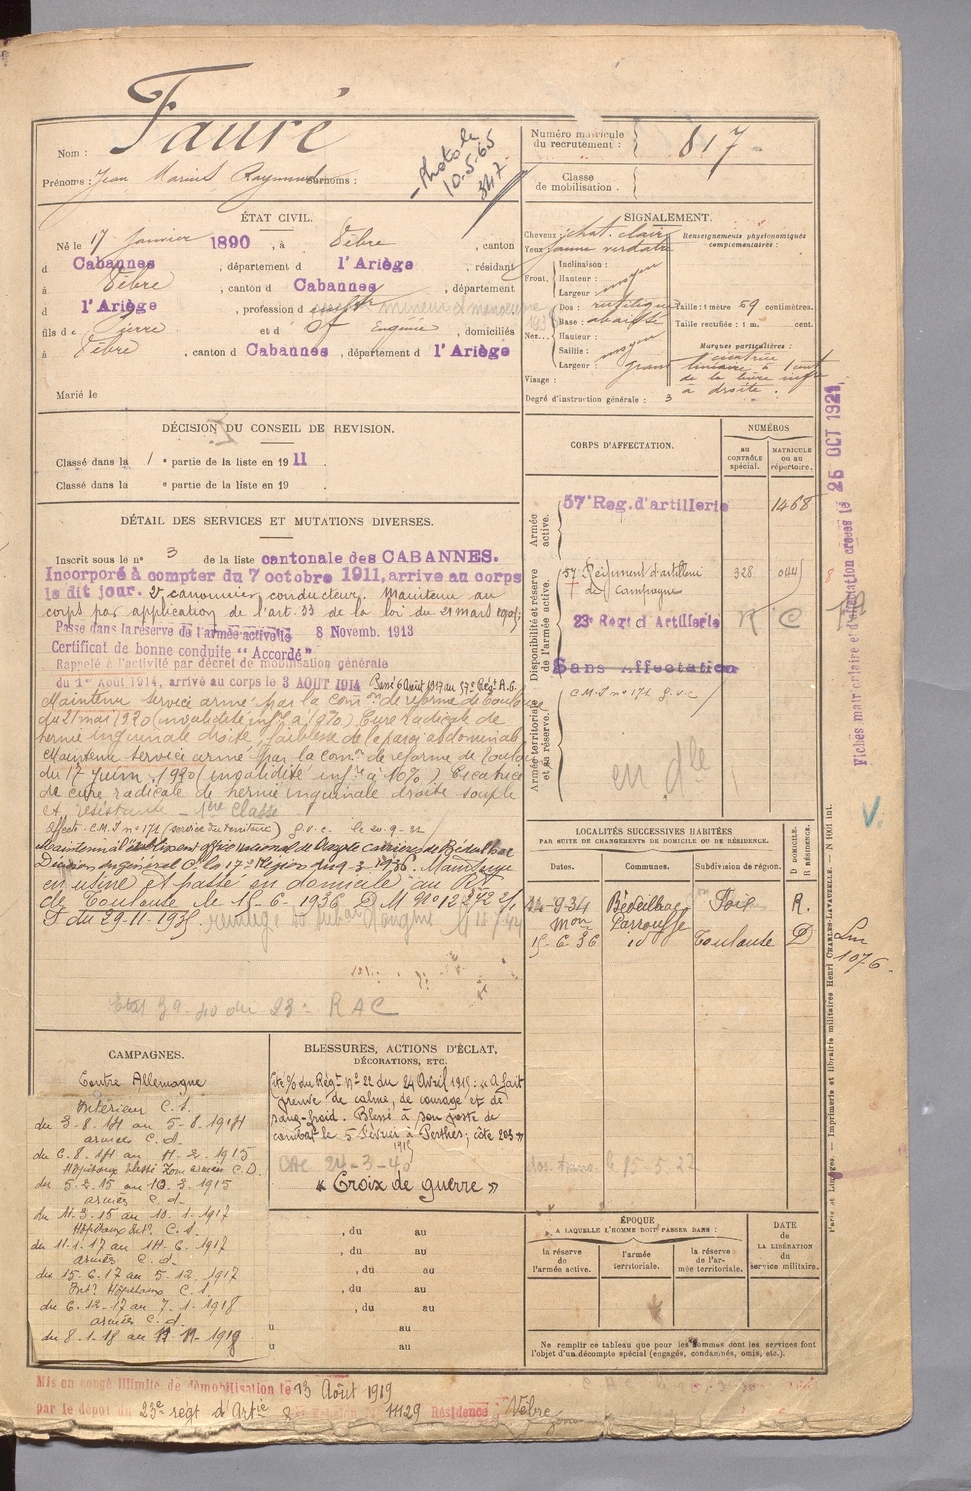 Nom : Fauré
Prénoms : Jean Marius Raymond Surnoms :
Photo le
10.5.65
347
Numéro matricule
du recrutement : 817
Classe
de mobilisation :
ÉTAT CIVIL.
Né le 17 Janvier 1890, à Vèbre, canton
d Cabannes, département d l'Ariège, résidant
à Vèbre, canton d Cabannes, département
d l'Ariège, profession d
fils de Pierre et d Eugénie, domiciliés
à Vèbre, canton d Cabannes, département d l'Ariège
Marié le
SIGNALEMENT.
Cheveux chat. clair
Yeux jaune verdâtre
Renseignements physionomiques
complémentaires :
Front
Inclinaison :
Hauteur : moyen
Largeur
Nez
Dos : rectiligne
Base : abaissée
Hauteur :
Saillie : moyen
Largeur :
Visage :
Degré d'instruction générale : 3
Taille : 1 mètre 69 centimètres.
Taille rectifiée : 1 m. cent.
Marques particulières :
cicatrice
linéaire à 1 cent
de la lèvre infre
à droite.
DÉCISION DU CONSEIL DE REVISION.
Classé dans la 1e partie de la liste en 1911.
Classé dans la e partie de la liste en 19 .
DÉTAIL DES SERVICES ET MUTATIONS DIVERSES.
Inscrit sous le n° 3 de la liste cantonale des CABANNES.
Incorporé à compter du 7 octobre 1911, arrive au corps
le dit jour. 2e canonnier conducteur. Maintenu au
corps par application de l'art. 33 de la loi du 21 mars 1905;
Passé dans la réserve de l'armée active le 8 Novemb. 1913
Certificat de bonne conduite "Accordé"
Rappelé à l'activité par décret de mobilisation générale
du 1er Août 1914, arrivé au corps le 3 AOUT 1914 Passé 6 Août 1917 au 57e Régt A.C.
Maintenu service armé par la comon de réforme de Toulouse
du 21 mai 1920 (invalidité infre à 10%) Cure radicale de
hernie inguinale droite faiblesse de la paroi abdominale
Maintenu service armé par la comon de réforme de Toulouse
du 17 Juin 1920 (invalidité infre à 10%) Cicatrice
de cure radicale de hernie inguinale droite souple
et résistante – 1ère classe
Affecté C.M.I n° 171 (service du territoire) g.v.c. le
en usine et passé en domicile au
de Toulouse le 15-6-1936 D.M n° 12272 2/1
T du 29-11-1935
Etat 39-40 du 23e RAC
CORPS D'AFFECTATION.
NUMÉROS
AU
CONTRÔLE
spécial.
MATRICULE
OU AU
répertoire.
Armée
active.
57e Reg. d'artillerie 1468
Disponibilité et réserve
de l'armée active.
57e Régiment d'artillerie 328 044
de Campagne
23e Regt d Artillerie
Sans Affectation
Armée territoriale
et sa réserve.
C.M.I n° 171 g.v.c
R C
en dle
Fiches matriculaire et d'affectation créées le 26 OCT 1921.
LOCALITÉS SUCCESSIVES HABITÉES
PAR SUITE DE CHANGEMENTS DE DOMICILE OU DE RÉSIDENCE.
Dates. Communes. Subdivision de région. D DOMICILE. R RÉSIDENCE.
22-9-34 Bédeilhac Foix R.
15-6-36 id Toulouse D
1076
CAMPAGNES.
Contre Allemagne
Intérieur C.S.
du 3-8-14 au 5-8-1914
armées C.d.
du 6.8.14 au 4-2-1915
Hôpitaux blessé Zone armées C.D.
du 5-2-15 au 10-3-1915
armées C.d.
du 11.3.15 au 10-1-1917
Hôpitaux Intr C.S.
du 11.1.17 au 14-6-1917
armées C.d.
du 15-6-17 au 5-12-1917
Intr Hôpitaux C.S.
du 6-12-17 au 7-1-1918
armées C.d.
du 8-1-18 au 11-11-1918
BLESSURES, ACTIONS D'ÉCLAT,
DÉCORATIONS, ETC.
Cité O/ du Régt N° 22 du 24 Avril 1915 : « A fait
preuve de calme, de courage et de
sang-froid. Blessé à son poste de
combat le 5 Février à Perthes; côte 203 »
1915
« Croix de guerre »
, du au
, du au
, du au
, du au
, du au
u au
u au
ÉPOQUE
A LAQUELLE L'HOMME DOIT PASSER DANS :
la réserve
de l'armée active.
l'armée
territoriale.
la réserve
de l'armée territoriale.
DATE
de
LA LIBÉRATION
du
service militaire.
Ne remplir ce tableau que pour les hommes dont les services font
l'objet d'un décompte spécial (engagés, condamnés, omis, etc.).
Paris et Limoges. — Imprimerie et librairie militaires Henri CHARLES-LAVAUZELLE. — N° 100 int.
Mis en congé illimité de démobilisation le 13 Août 1919
par le dépôt du 23e régt d'Artie 8e Echelon 11129 Résidence Vèbre